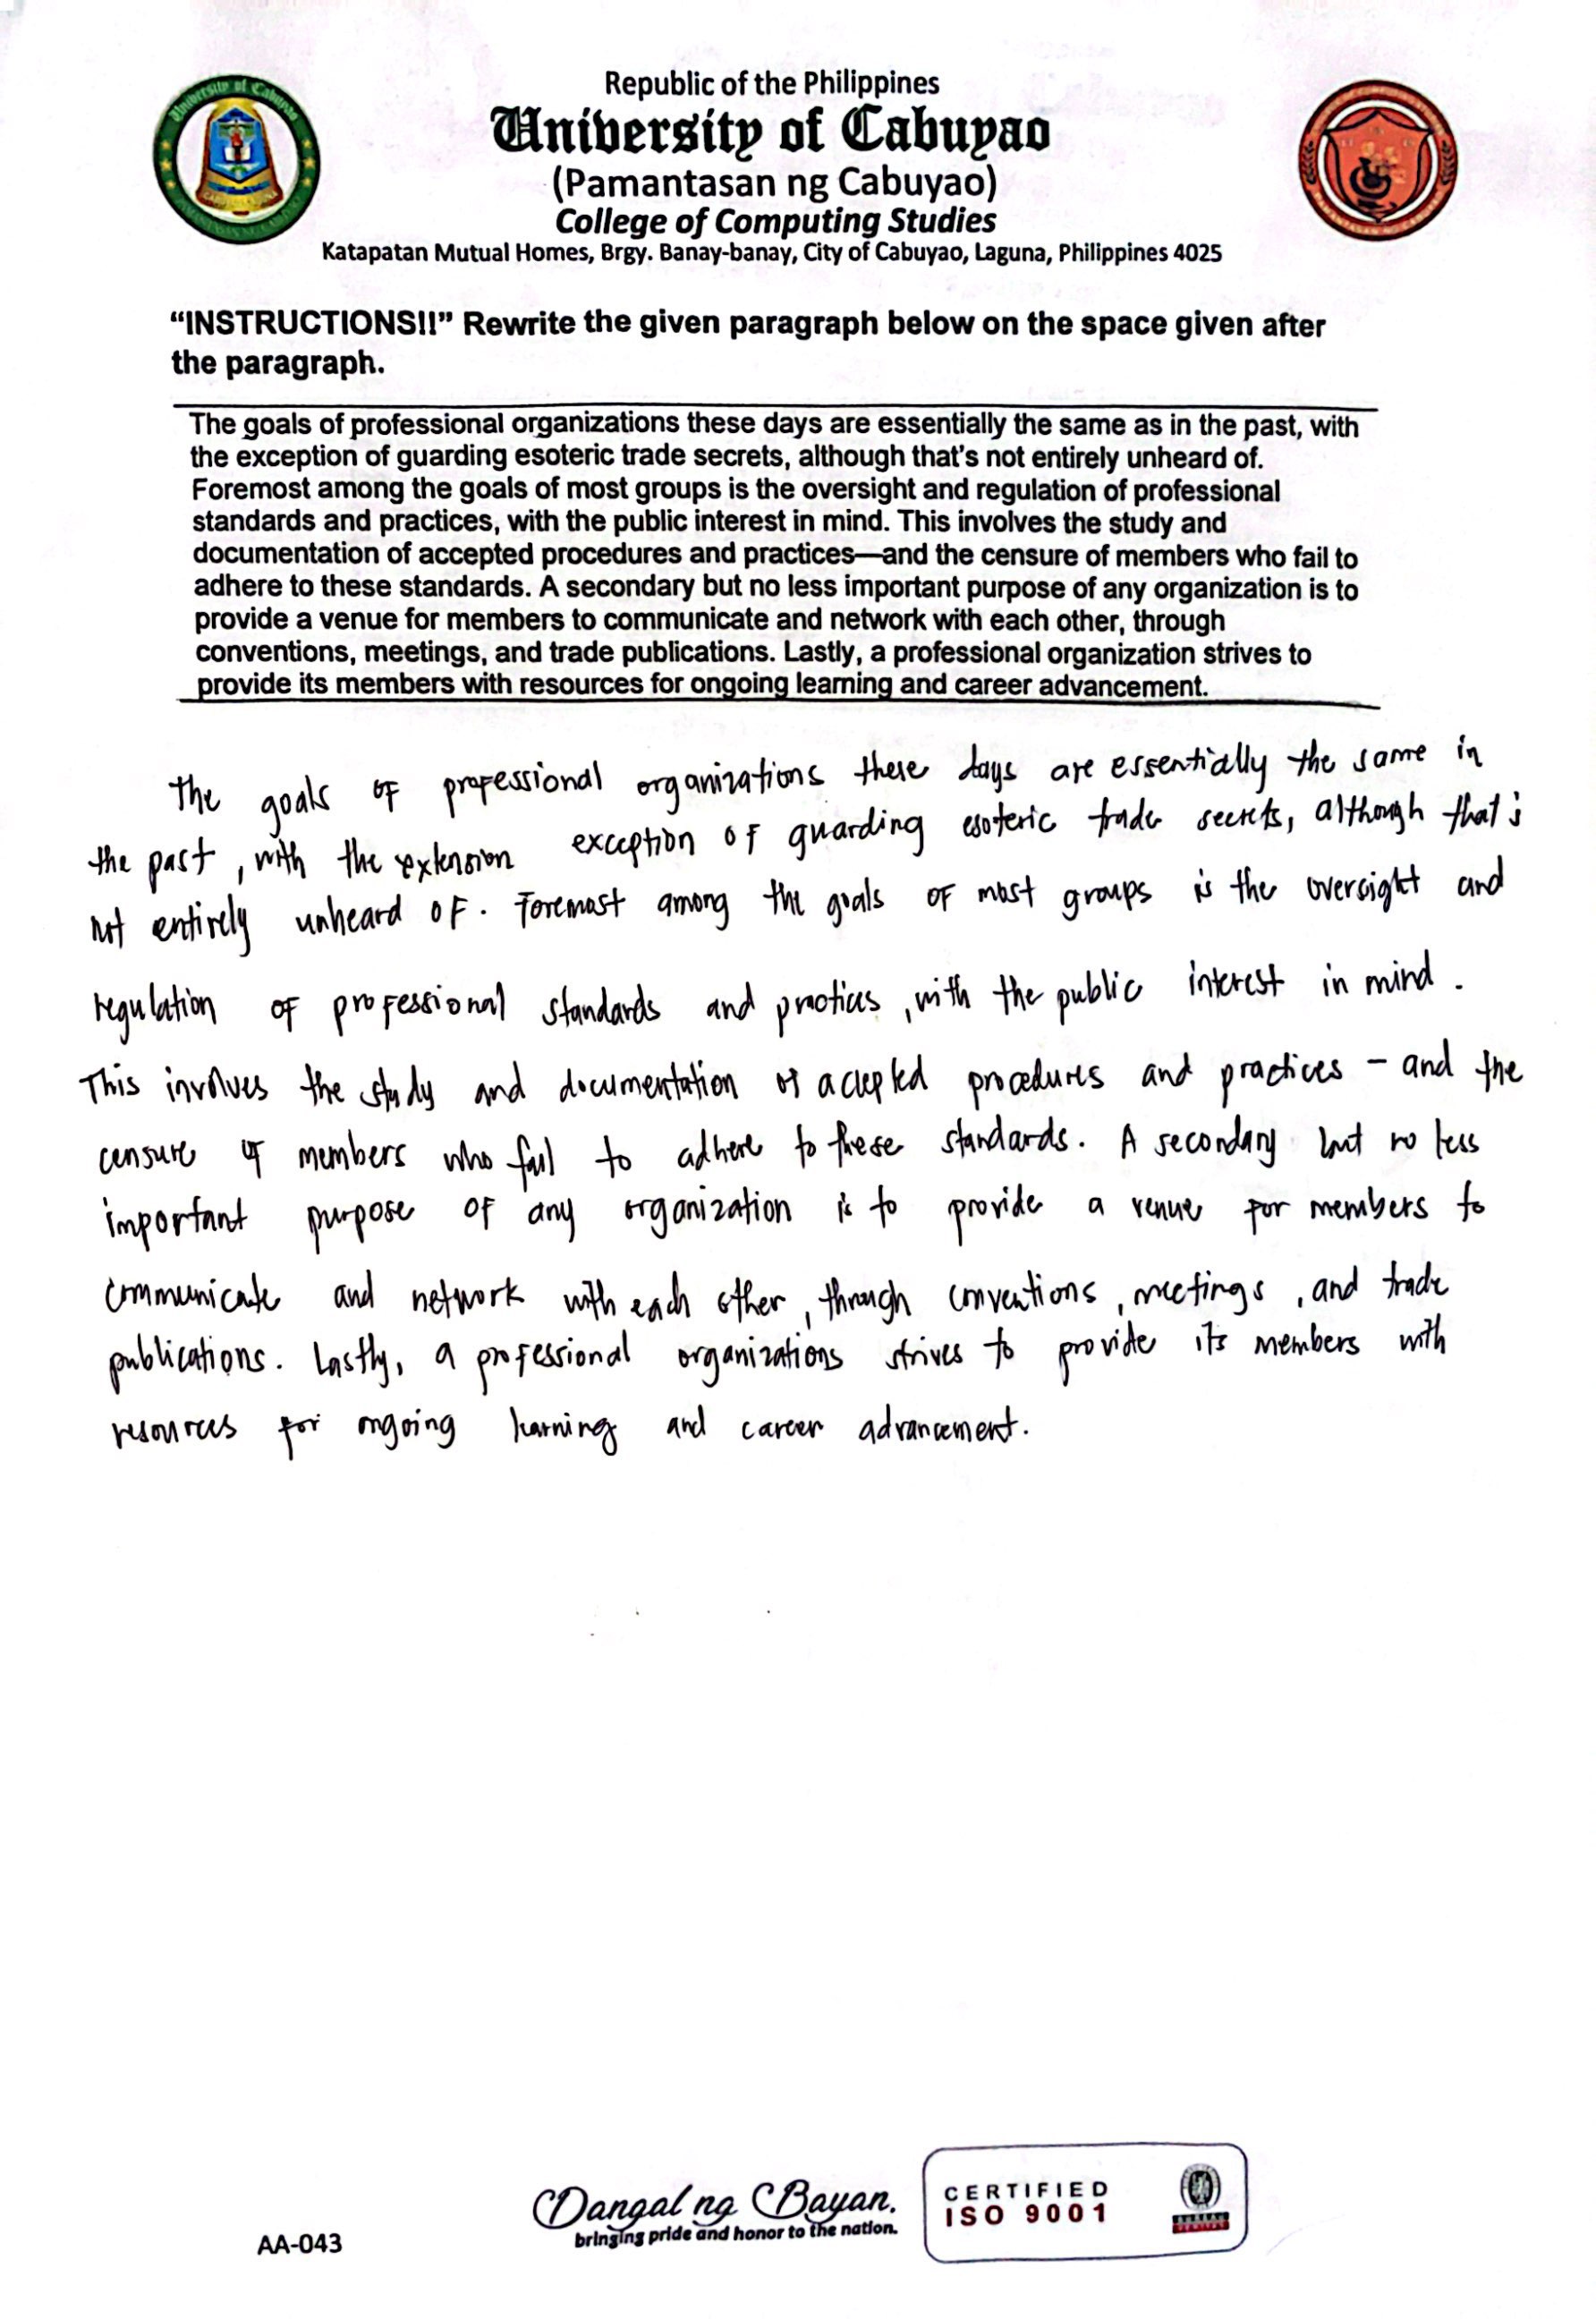 Republic of the Philippines
University of Cabuyao
(Pamantasan ng Cabuyao)
College of Computing Studies
Katapatan Mutual Homes, Brgy. Banay-banay, City of Cabuyao, Laguna, Philippines 4025
“INSTRUCTIONS!!” Rewrite the given paragraph below on the space given after
the paragraph.
The goals of professional organizations these days are essentially the same as in the past, with
the exception of guarding esoteric trade secrets, although that’s not entirely unheard of.
Foremost among the goals of most groups is the oversight and regulation of professional
standards and practices, with the public interest in mind. This involves the study and
documentation of accepted procedures and practices—and the censure of members who fail to
adhere to these standards. A secondary but no less important purpose of any organization is to
provide a venue for members to communicate and network with each other, through
conventions, meetings, and trade publications. Lastly, a professional organization strives to
provide its members with resources for ongoing learning and career advancement.
The goals of professional organizations these days are essentially the same in
the past, with the extension exception of guarding esoteric trade secrets, although that's
not entirely unheard of. Foremost among the goals of most groups is the oversight and
regulation of professional standards and practices, with the public interest in mind.
This involves the study and documentation of accepted procedures and practices - and the
censure of members who fail to adhere to these standards. A secondary but no less
important purpose of any organization is to provide a venue for members to
communicate and network with each other, through conventions, meetings, and trade
publications. Lastly, a professional organizations strives to provide its members with
resources for ongoing learning and career advancement.
AA-043
Dangal ng Bayan.
bringing pride and honor to the nation.
CERTIFIED
ISO 9001